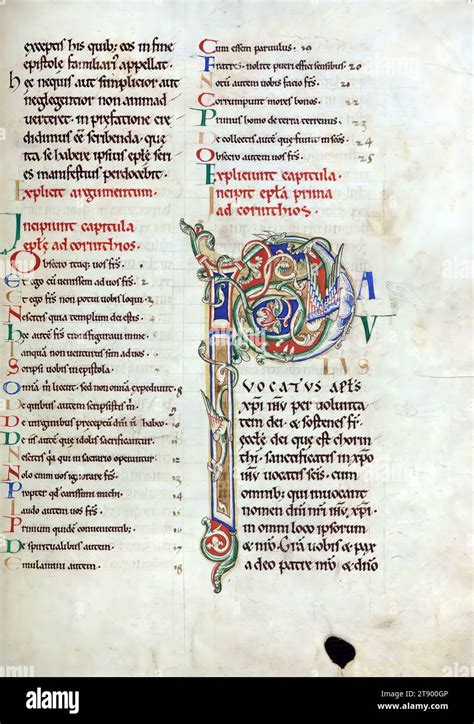 exceptis his quib; eos in fine
epistole familiarit appellat.
hec nequis aut simplicior aut
neglegentior non animad
verteret. in prefatione cre
didimus ee scribenda. que
se habere ipsius eplę seri
es manifestius perdocebit.
Explicit argumentum.
Incipiunt capitula
eplę ad corinthios.
Obsecro itaq; vos frs.
Et ego cu venissem ad vos frs.
Et ego frs non potui vobis loqui
Nescitis quia templum dei estis.
Hec autē frs transfiguravi in me.
Scripsi vobis in epistola.
Omīa m̄ licent. sed non omīa expediunt. 8
De quibus autem scripsistis m̄
De virginibus preceptū dn̄i n̄ habeo.
De iis autē que idolis sacrificantur.
Nescitis qm̄ qui in sacrario operantur. 12
Nolo enim vos ignorare frs.
Propter qd carissimi michi.
Laudo autem vos frs.
Primum quidē convenientib;
De spiritualibus autem.
Emulamini autem. 18
Cum essem parvulus. 19
Fratres. nolite pueri effici sensibus. 20
Notū autem vobis facio frs.
Corrumpunt mores bonos. 22
Primus homo de terra terrenus. 23
De collectis autē que fiunt in scōs. 24
Obsecro autem vos frs. 25
Expliciunt capitula.
Incipit epła prima
ad corinthios.
PAV
LVS
VOCATVS APLS
xp̄i ih̄u per volunta
tem dei. & sostenes fr̄.
ęcclę dei que est chorin
thi. sanctificatis in xp̄o
ih̄u vocatis scis. cum
omnib; qui invocant
nomen dn̄i nr̄i ih̄u xp̄i
in omni loco ipsorum
& nr̄o. Gr̄a vobis & pax
a deo patre nr̄o & dn̄o
alamy
Image ID: 2T90OGP
www.alamy.com